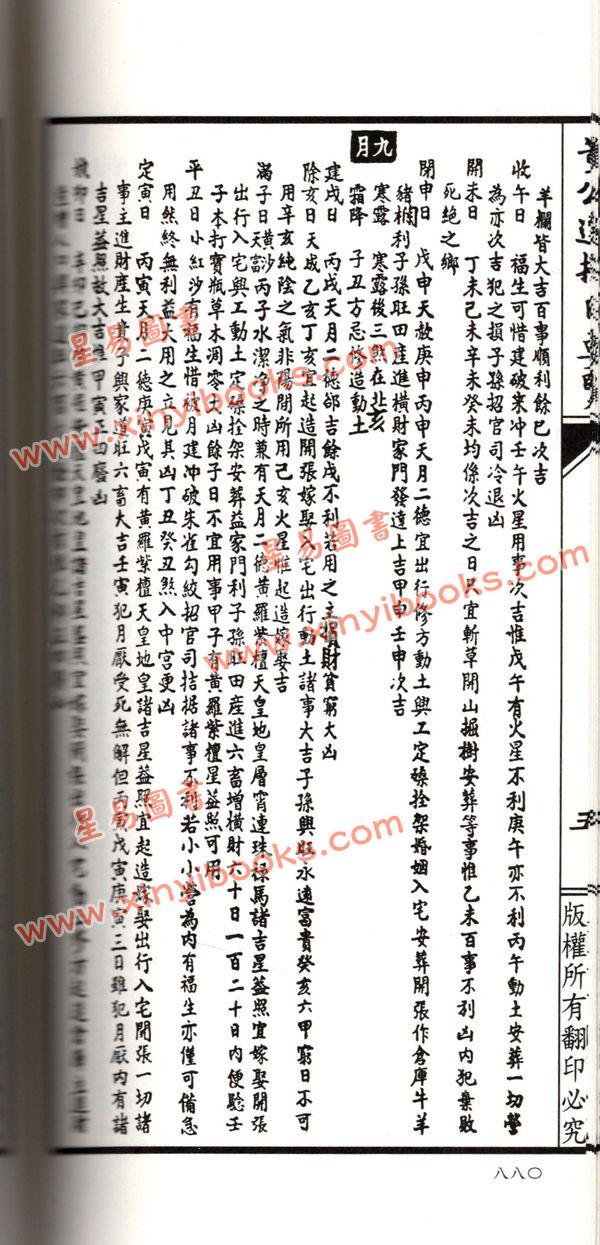 羊欄皆大吉百事順利餘巳次吉
收午日　福生可惜建破來冲壬午火星用事次吉惟戊午有火星不利庚午亦不利丙午動土安葬一切營
為亦次吉犯之損子孫招官司冷退凶
開未日　丁未己未辛未癸未均係次吉之日只宜斬草開山掘樹安葬等事惟乙未百事不利凶內犯棄敗
死絕之鄉
閉申日　戊申天赦庚申丙申天月二德宜出行修方動土興工定磉拴架婚姻入宅安葬開張作倉庫牛羊
豬棚利子孫旺田產進橫財家門發達上吉甲申壬申次吉
九月
寒露　寒露後三煞在北亥
霜降　子丑方忌修造動土
建戌日　丙戌天月二德部吉餘戌不利若用之主損財貧窮大凶
除亥日天成乙亥丁亥宜起造開張嫁娶入宅出行動土諸事大吉子孫興旺永遠富貴癸亥六甲窮日不可
用辛亥純陰之氣非陽間所用己亥火星惟起造嫁娶吉
滿子日黃沙丙子水潔淨之時兼有天月二德黃羅紫檀天皇地皇層霄連珠祿馬諸吉星蓋照宜嫁娶開張
出行入宅興工動土定磉拴架安葬益家門利子孫旺田産進六畜增橫財六十日一百二十日內便驗壬
子木打寶瓶草木凋零大凶餘子日不宜用事甲子有黃羅紫檀星蓋照可用
平丑日小紅沙有福生惜被月建冲破朱雀勾絞招官司拮据諸事不利若小小營為內有福生亦僅可備急
用然終無利益大用之立見其凶丁丑癸丑煞入中宮更凶
定寅日　丙寅天月二德庚寅戊寅有黃羅紫檀天皇地皇諸吉星蓋照宜起造嫁娶出行入宅開張一切諸
事主進財産生貴子興家道旺六畜大吉壬寅犯月厭受死無解但丙寅戊寅庚寅三日雖犯月厭內有諸
吉星蓋照故大吉惟甲寅正四廢凶
執卯日　辛卯己卯
版權所有翻印必究
八八〇
星易圖書
www.xinyibooks.com
星易圖書
www.xinyibooks.com
星易圖書
www.xinyibooks.com